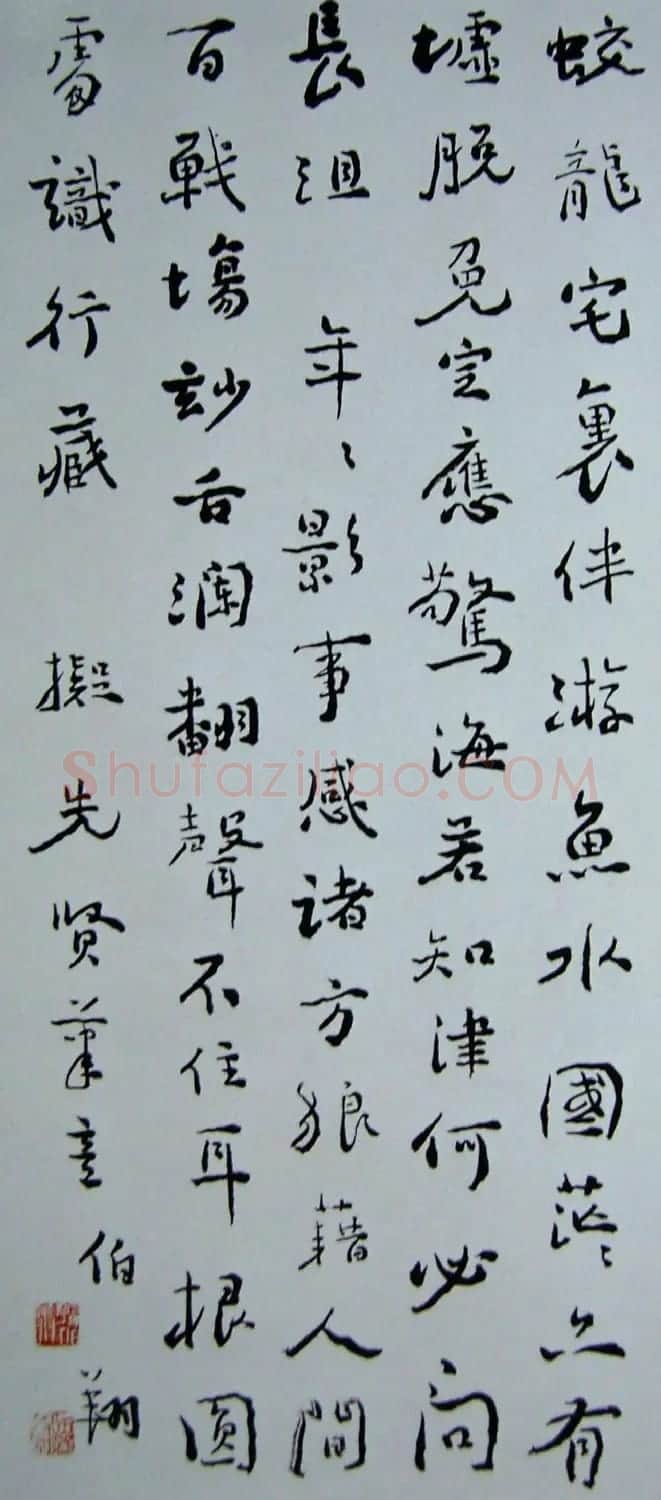 蛟龍宅裏伴游魚水國茫〻亦有
墟脫免定應驚海若知津何必問
長沮 年〻影事感諸方狼藉人間
百戰場玅舌瀾翻聲不住耳根圓
處識行藏 擬先賢筆意 伯翔
Shufaziliao.COM